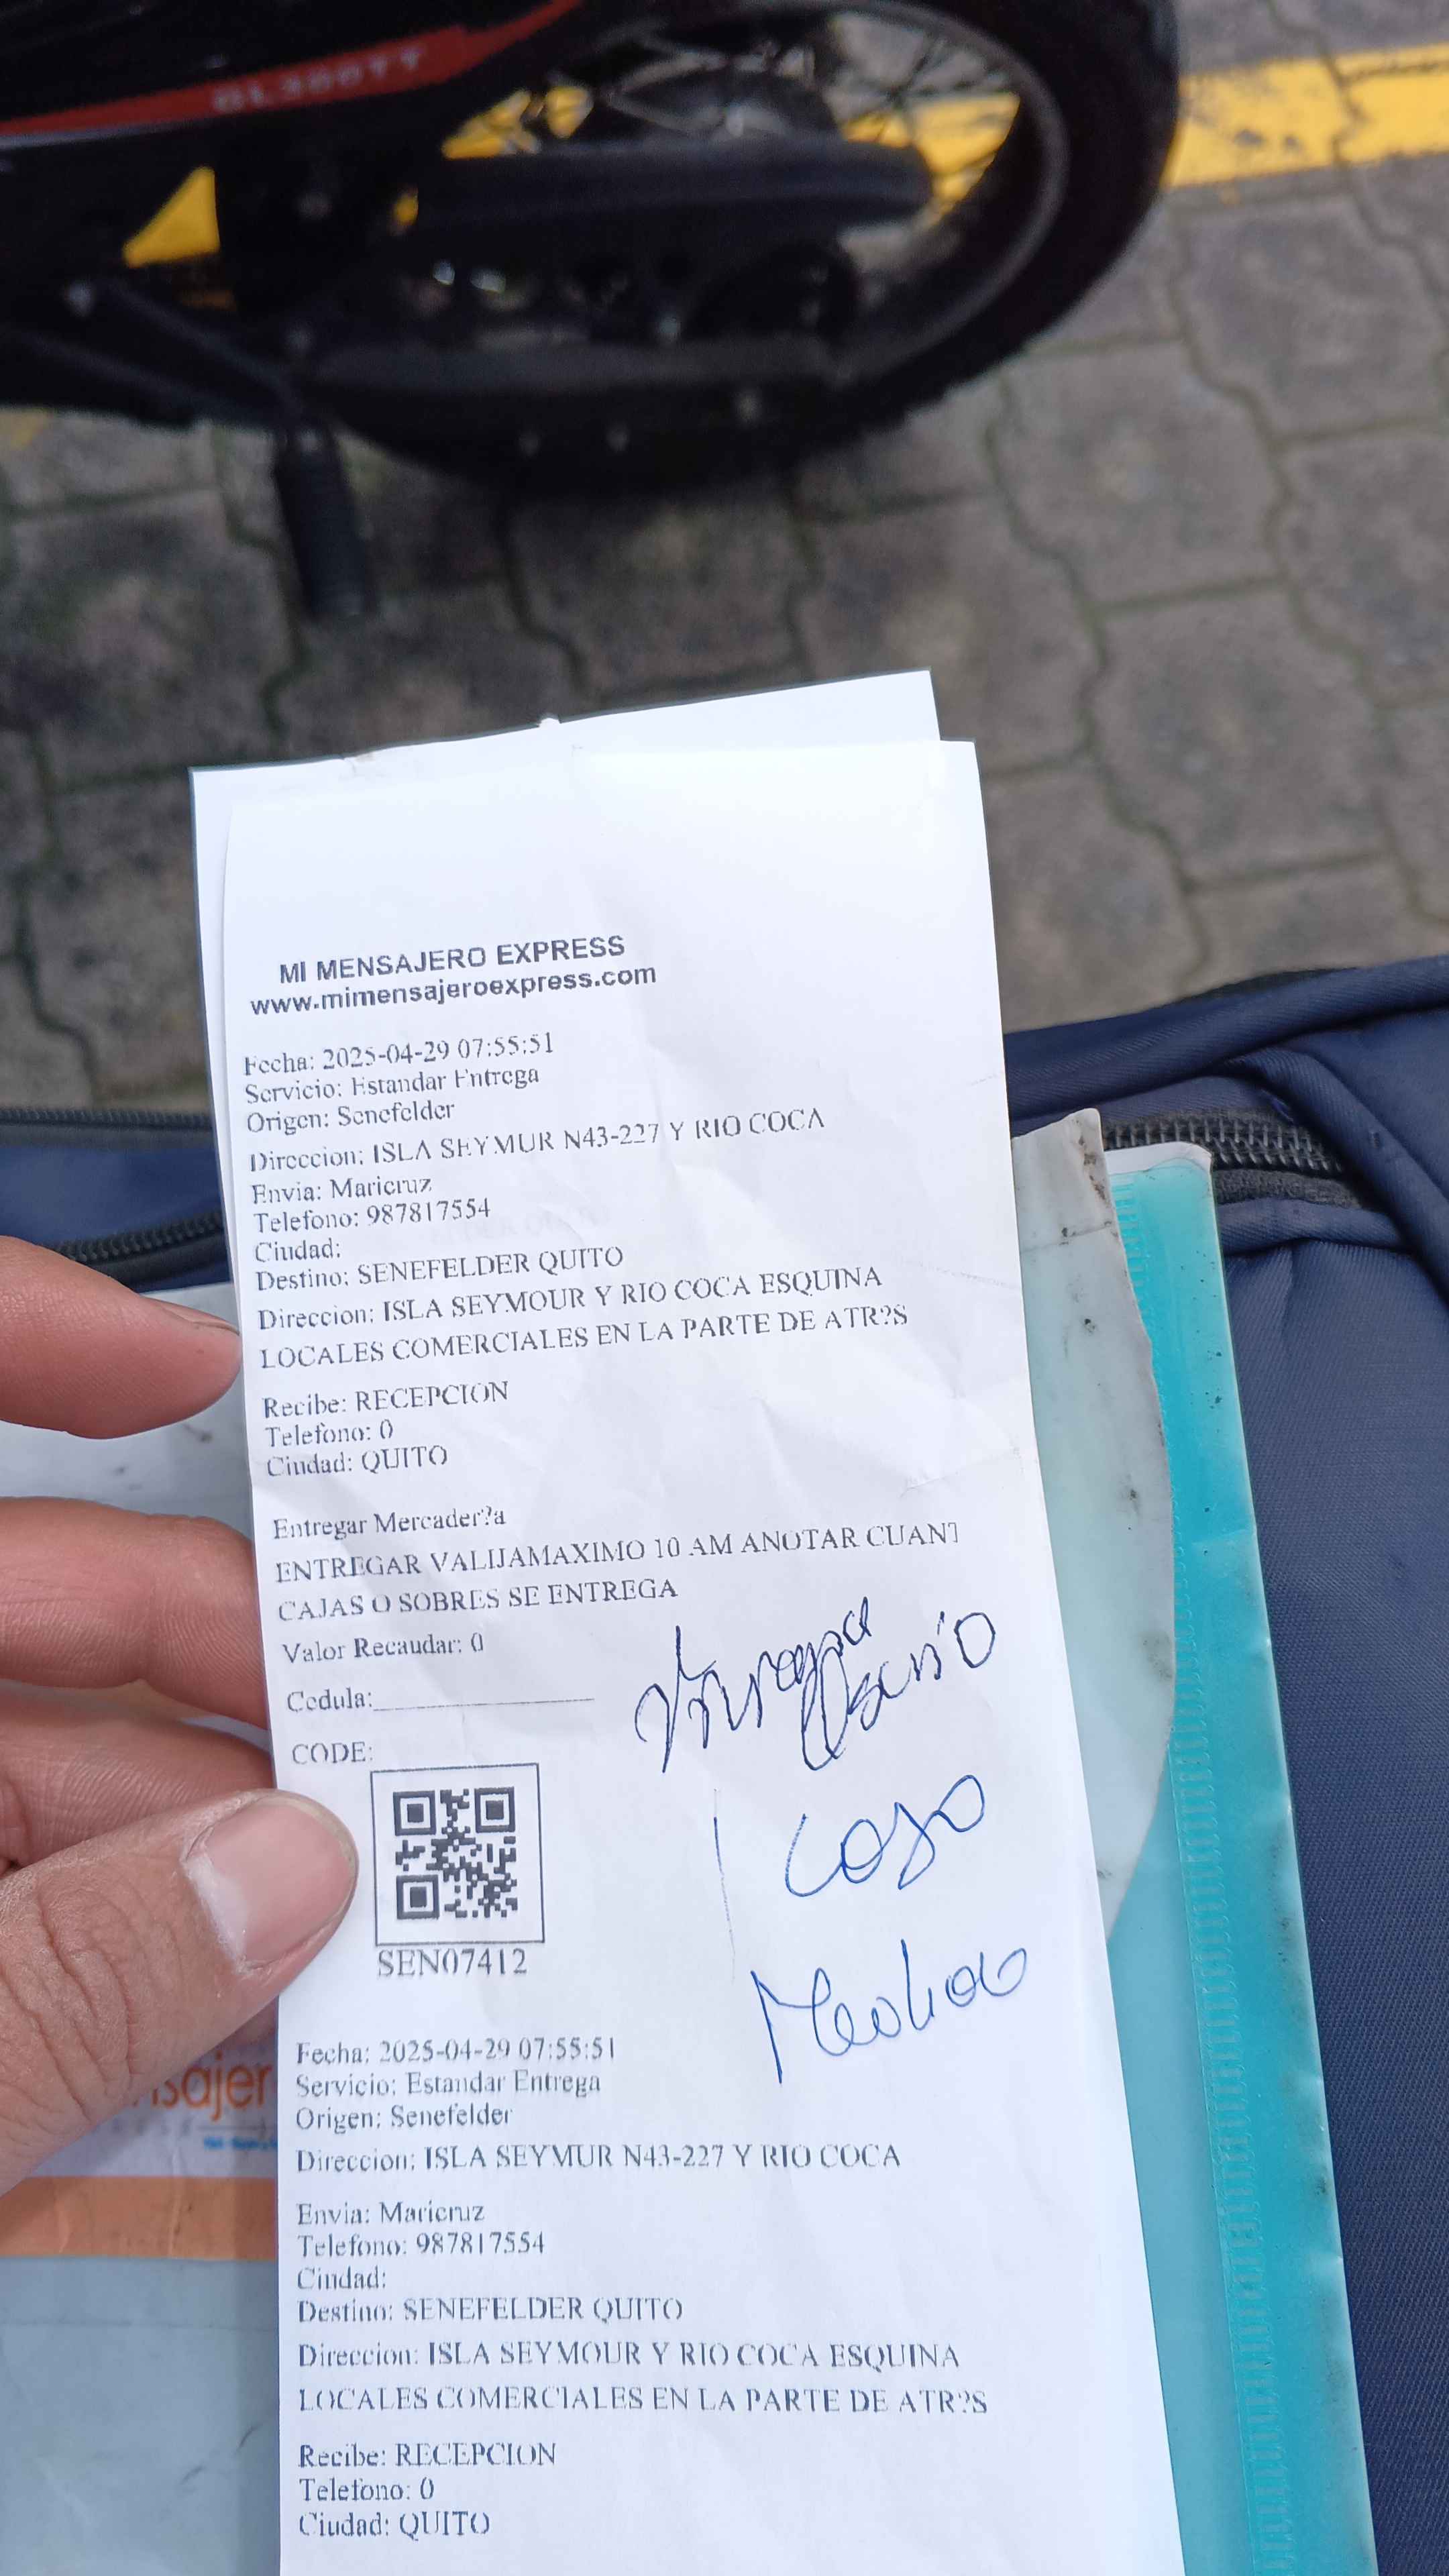 MI MENSAJERO EXPRESS
www.mimensajeroexpress.com
Fecha: 2025-04-29 07:55:51
Servicio: Estandar Entrega
Origen: Senefelder
Direccion: ISLA SEYMUR N43-227 Y RIO COCA
Envia: Maricruz
Telefono: 987817554
Ciudad:
Destino: SENEFELDER QUITO
Direccion: ISLA SEYMOUR Y RIO COCA ESQUINA
LOCALES COMERCIALES EN LA PARTE DE ATR?S
Recibe: RECEPCION
Telefono: 0
Ciudad: QUITO
Entregar Mercader?a
ENTREGAR VALIJAMAXIMO 10 AM ANOTAR CUANT
CAJAS O SOBRES SE ENTREGA
Valor Recaudar: 0
Cedula:
CODE:
SEN07412
Fecha: 2025-04-29 07:55:51
Servicio: Estandar Entrega
Origen: Senefelder
Direccion: ISLA SEYMUR N43-227 Y RIO COCA
Envia: Maricruz
Telefono: 987817554
Ciudad:
Destino: SENEFELDER QUITO
Direccion: ISLA SEYMOUR Y RIO COCA ESQUINA
LOCALES COMERCIALES EN LA PARTE DE ATR?S
Recibe: RECEPCION
Telefono: 0
Ciudad: QUITO